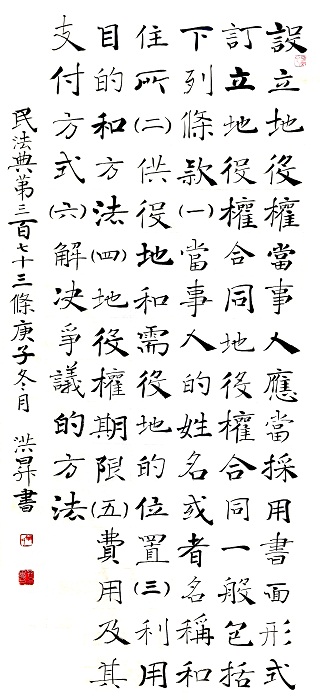 設立地役權當事人應當採用書面形式
訂立地役權合同地役權合同一般包括
下列條款(一)當事人的姓名或者名稱和
住所(二)供役地和需役地的位置(三)利用
目的和方法(四)地役權期限(五)費用及其
支付方式(六)解决爭議的方法
民法典第三百七十三條庚子冬月 洪昇書